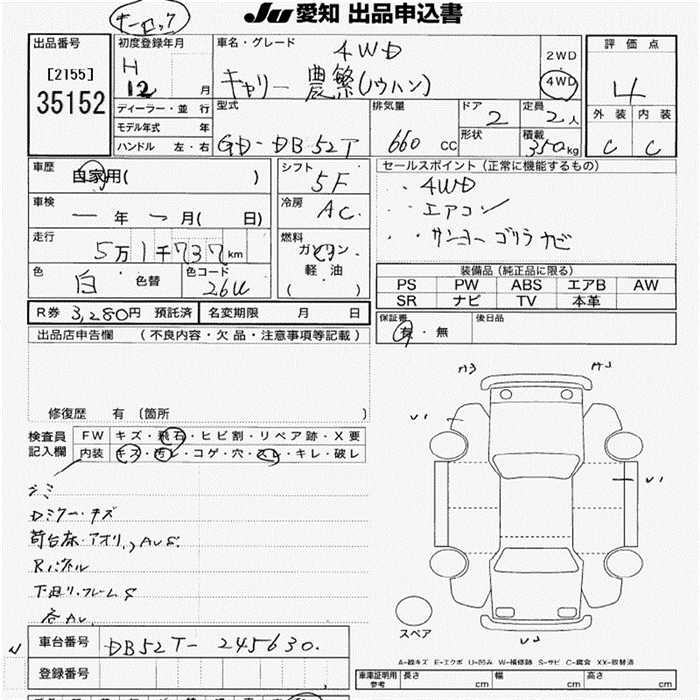 キーロック
JU 愛知 出品申込書
出品番号
[2155]
35152
初度登録年月
H 12 月
ディーラー・並行
モデル年式 年
ハンドル 左・右
車名・グレード
4WD
キャリー 農繁(ノウハン)
2WD
4WD
型式
GD-DB52T
排気量
660 CC
ドア
2
形状
定員
2人
積載
350kg
評価点
4
外装 内装
C C
車歴
自家用( )
車検
年 月( 日)
走行
5万1千737km
色
白 色替
色コード
26U
シフト
5F
冷房
AC
燃料
ガソリン
軽油
( )
セールスポイント(正常に機能するもの)
・4WD
・エアコン
・サンヨーゴリラナビ
装備品(純正品に限る)
PS PW ABS エアB AW
SR ナビ TV 本革
R券 3,280円 預託済
名変期限 月 日
保証書
有・無
後日品
出品店申告欄 (不良内容・欠品・注意事項等記載)
修復歴 有 (箇所 )
検査員
記入欄
FW キズ・飛石・ヒビ割・リペア跡・X要
内装 キズ・汚レ・コゲ・穴・スレ・キレ・破レ
シミ
Dミラーキズ
荷台床・アオリ,,AUS.
Rパネル
下回リ・フレームS
各AU.
A3 A3
U1
U1
U2
スペア
A=線キズ E=エクボ U=凹み W=補修跡 S=サビ C=腐食 XX=取替済
車台番号
DB52T-245630.
登録番号
車庫証明用
参考
長さ cm
幅 cm
高さ cm